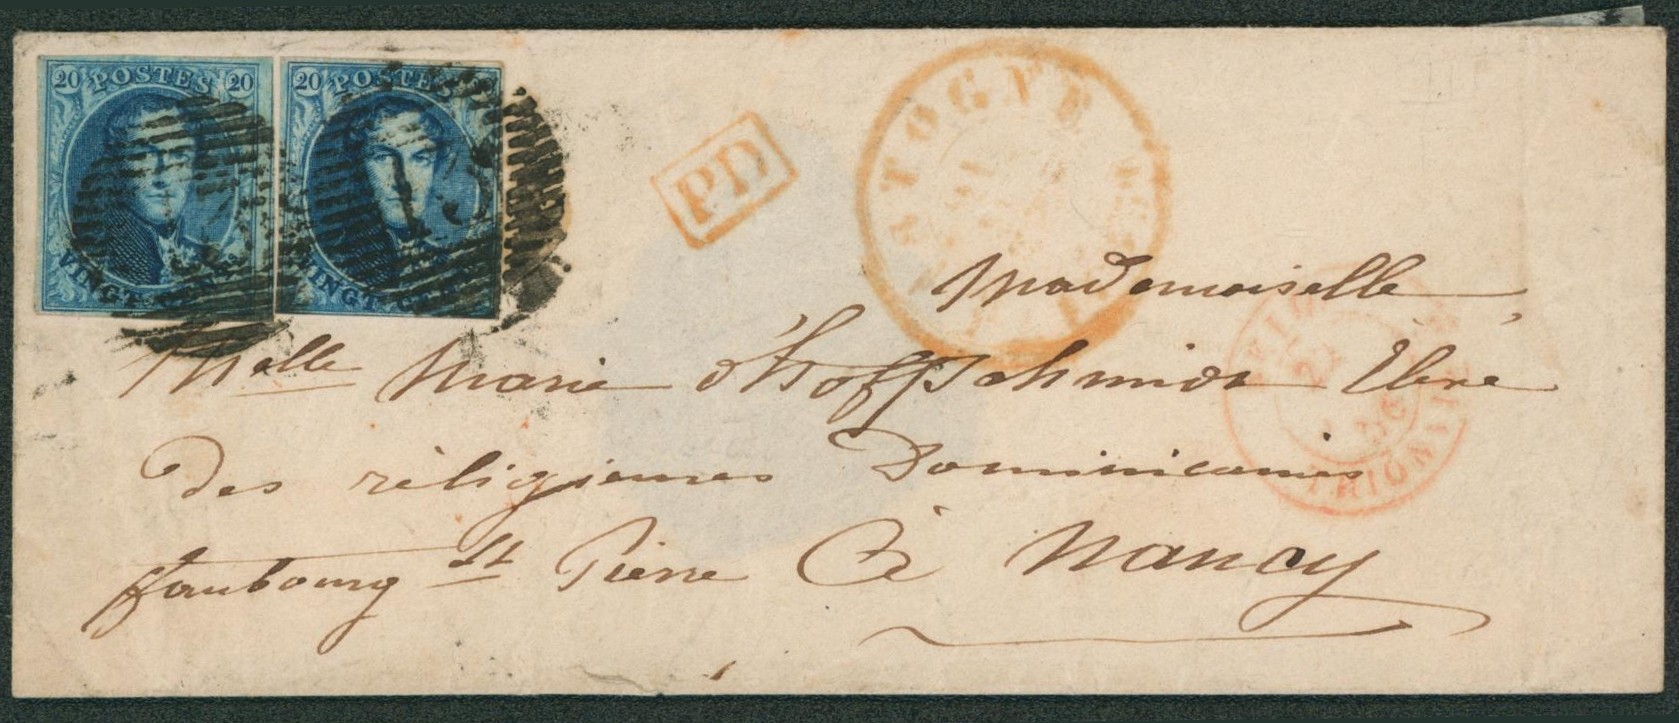 20 POSTES 20
VINGT CENT
20 POSTES 20
VINGT CENT
PD
STOGNE
Mademoiselle
Melle Marie d'Hoffschmidt Elève
des réligieuses Dominicaines
ffaubourg St Pierre à Nancy